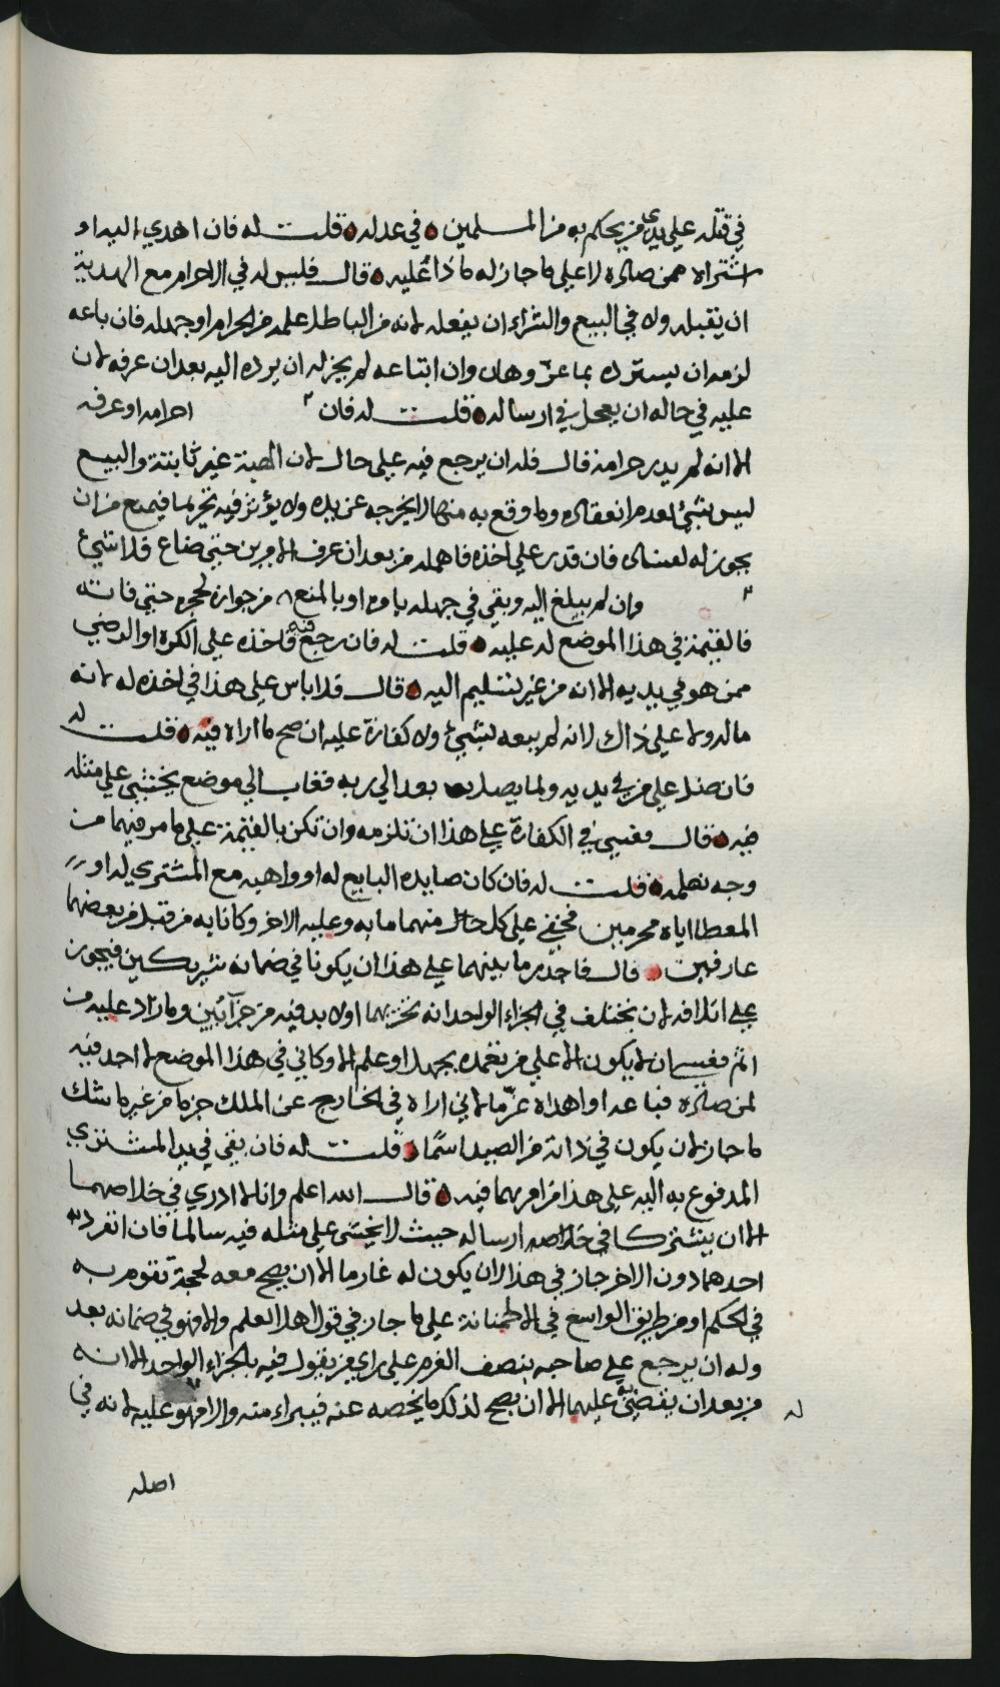 في قتله علي يدي من يحكم به من المسلمين في عدله قلت له فان اهدي اليه او
اشتراه ممن صاده لا علي ما جاز له ماذا عليه قال فليس له في الاحرام مع الهدية
ان يقبله ولا في البيع والشراء ان يفعله لانه من الباطل علمه من الحرام او جهله فان باعه
لزمه ان يسترده بما عز وهان وان ابتاعه لم يجز له ان يرده اليه بعد ان عرفه لان
عليه في حاله ان يعجل في ارساله قلت له فان احرامه او عرفه
الا انه لم يدر حرامه قال فله ان يرجع فيه علي حال لان الهبة غير ثابتة والبيع
ليس بشيء لعدم انعقاده وما وقع به منهما لا يخرجه عن يده ولا يؤثر فيه تحريما فيمنع من ان
يجوز له لعساه فان قدر علي اخذه فاهمله من بعد ان عرف الامرين حتي ضاع فلا شيء
وان لم يبلغ اليه وبقي في جهله باوه او بالمنع من جوازه لحجره حتي فاته
فالقيمة في هذا الموضع له عليه قلت له فان رجع فيه فاخذه علي الكره او الرضي
ممن هو في يديه الا انه من غير تسليم اليه قال فلا باس علي هذا في اخذه له لانه
ماله وما علي ذاك لانه لم يبعه لشيء ولا كفارة عليه ان صح ما اراه فيه قلت له
فان ضل علي من في يديه ولما يصل به بعد الي ربه فغاب الي موضع يخشي علي مثله
فيه قال فعسي في الكفارة علي هذا ان تلزمه وان تكن بالقيمة علي ما مر فيهما من
وجه نعلمه قلت له فان كان صايده البايع له او واهبه مع المشتري له او
المعطا اياه محرمين فخفي علي كل حال منهما ما به وعليه الاخر وكانا به من قبل من بعضهما
عارفين قال فاحد ما بينهما علي هذا ان يكونا في ضمانه شريكين فيجوز
علي اتلافه لان يختلف في الجزاء الواحد انه يجزيهما او لا بد فيه من جزآئين وما زاد عليه من
اثم فعسي ان لا يكون الا علي من تعمده بجهل او علم الا وكاني في هذا الموضع لا احد فيه
لمن صاده فباعه او اهداه غرما لاني اراه في الخارج عن الملك جزما من غير ما شك
ما جاز لان يكون في ذاته من الصيد اسما قلت له فان بقي في يد المشتري
المدفوع به اليه علي هذا من امرهما فيه قال الله اعلم وانا لا ادري في خلاصهما
الا ان يشتركا في خلاصه ارساله حيث لا يخشي علي مثله فيه سالما فان انفرد به
احدهما دون الاخر جاز في هذا لان يكون له غارما الا ان يصح معه لحجة تقوم به
في الحكم او من طريق الواسع في الاطمنانة علي ما جاز في قول اهل العلم والا فهو في ضمانه بعد
وله ان يرجع علي صاحبه بنصف الغرم علي راي من يقول فيه بالجزاء الواحد الا انه
من بعد ان يقضي به عليهما الا ان يصح له ذلك ما يخصه عنه فيبراء منه والا فهو عليه لانه في
له
اصله